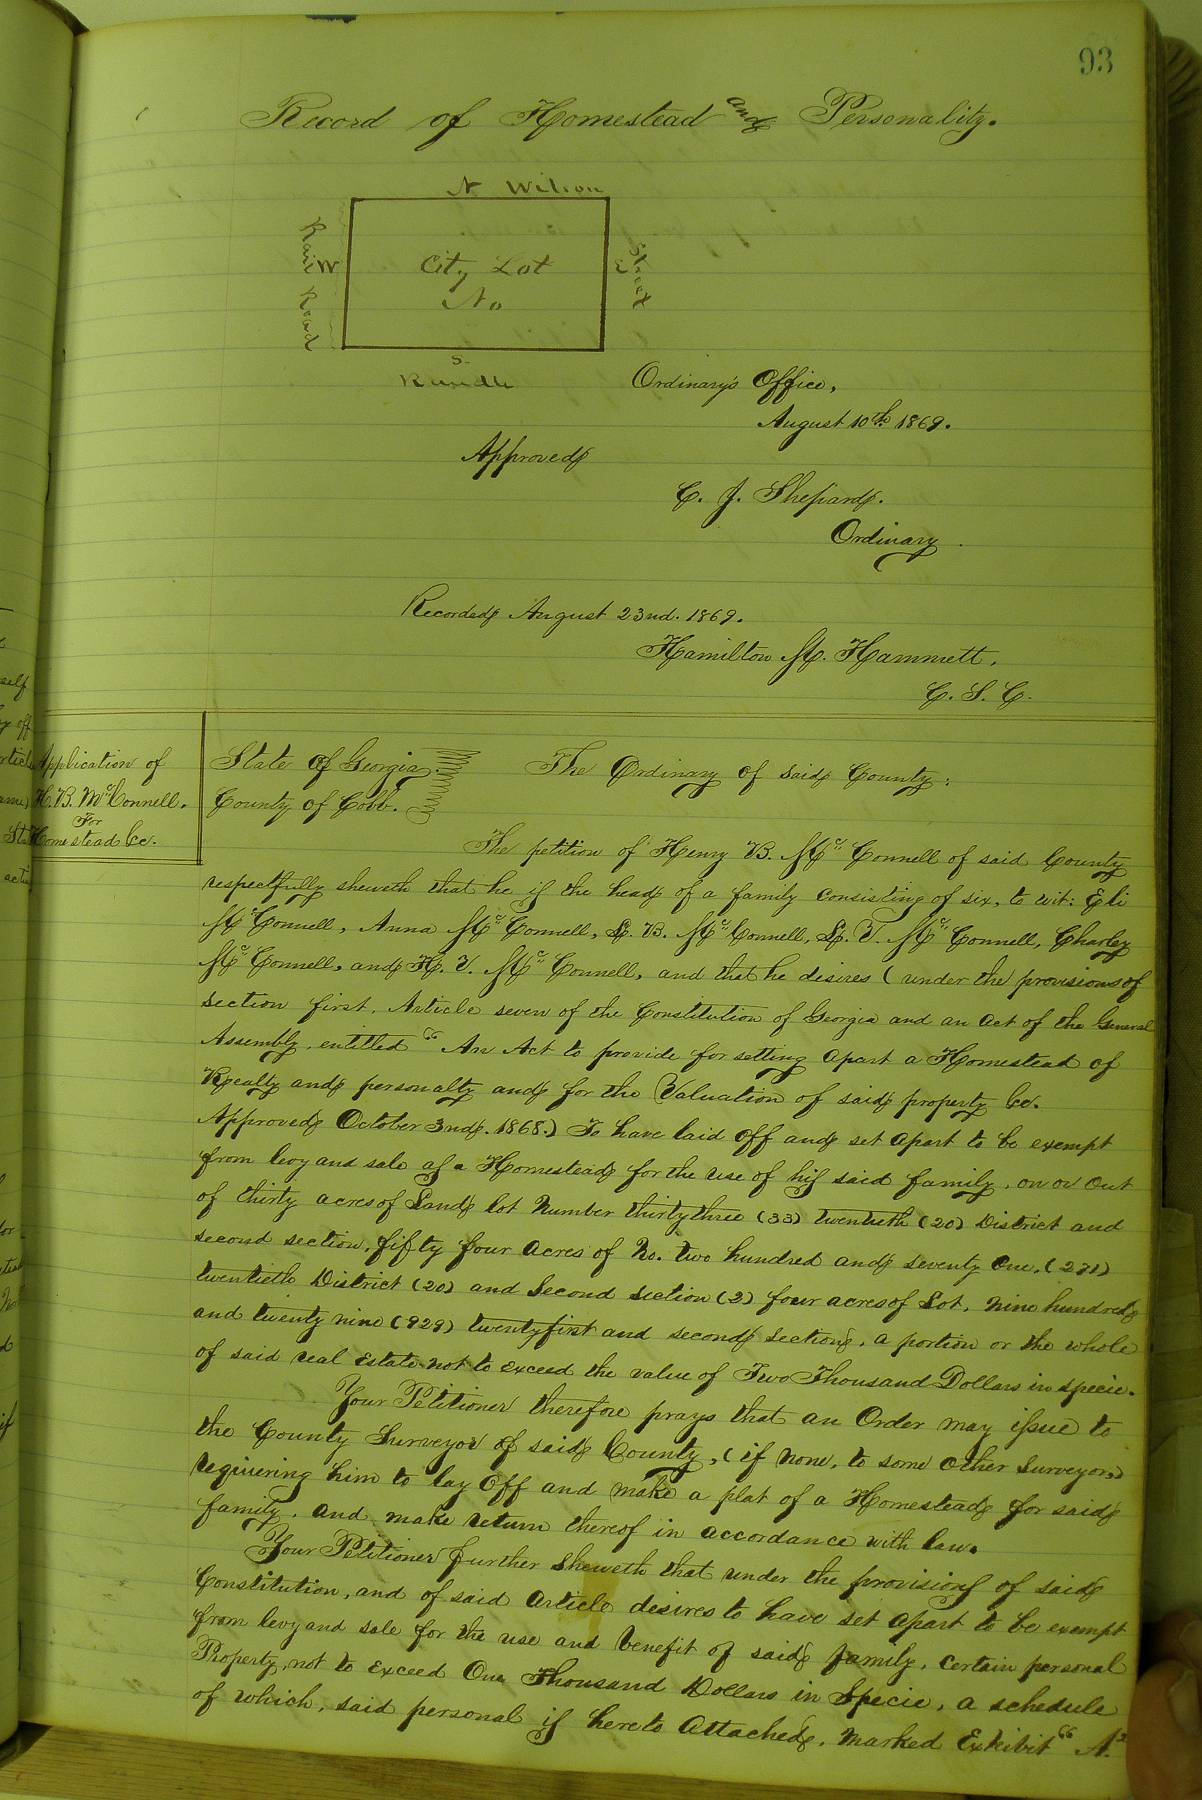 93
Record of Homestead and Personality.
N Wilson
Rail W Road
City Lot
No
E Street
S.
Rundle
Ordinary's Office,
August 10th 1869.
Approved
C. J. Shepard.
Ordinary.
Recorded August 23nd. 1869.
Hamilton M. Hammett,
C. S. C.
Application of
H. B. McConnell.
For
Homestead &c.
State of Georgia.
County of Cobb.
The Ordinary of said County:
The petition of Henry B. McConnell of said County
respectfully sheweth that he is the head of a family consisting of six, to wit: Eli
McConnell, Anna McConnell, L. B. McConnell, L. T. McConnell, Charley
McConnell, and H. V. McConnell, and that he desires (under the provisions of
section first, Article seven of the Constitution of Georgia and an act of the General
Assembly, entitled "An Act to provide for setting apart a Homestead of
Realty and personalty and for the Valuation of said property &c.
Approved October 3nd. 1868.) To have laid off and set apart to be exempt
from levy and sale as a Homestead for the use of his said family, on or out
of thirty acres of Land lot Number thirty three (33) twentieth (20) District and
second section, fifty four acres of No. two hundred and seventy one, (271)
twentieth District (20) and Second section (2) four acres of Lot, nine hundred
and twenty nine (929) twenty first and second section, a portion or the whole
of said real Estate not to exceed the value of Two Thousand Dollars in specie.
Your Petitioner therefore prays that an Order may issue to
the County Surveyor of said County, (if none, to some other Surveyor,)
requiering him to lay off and make a plat of a Homestead for said
family, and make return thereof in accordance with law.
Your Petitioner further sheweth that under the provisions of said
Constitution, and of said Article desires to have set apart to be exempt
from levy and sale for the use and benefit of said family, certain personal
Property, not to exceed One Thousand Dollars in Specie, a schedule
of which, said personal is hereto attached, marked Exhibit "A."